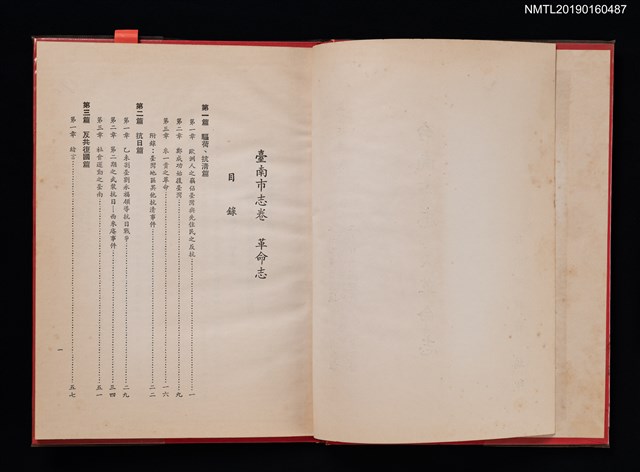 NMTL20190160487
臺南市志卷 革命志
目錄
第一篇 驅荷、抗清篇
第一章 歐洲人之竊佔臺灣與先住民之反抗……一
第二章 鄭成功始復臺灣……九
第三章 朱一貴之革命……一六
附錄：臺灣地區其他抗清事件……二二
第二篇 抗日篇
第一章 乙未割臺劉永福領導抗日戰爭……二九
第二章 第二期之武裝抗日—西來庵事件……三四
第三章 社會運動之臺南……五一
第三篇 反共復國篇
第一章 緒言……五七
一